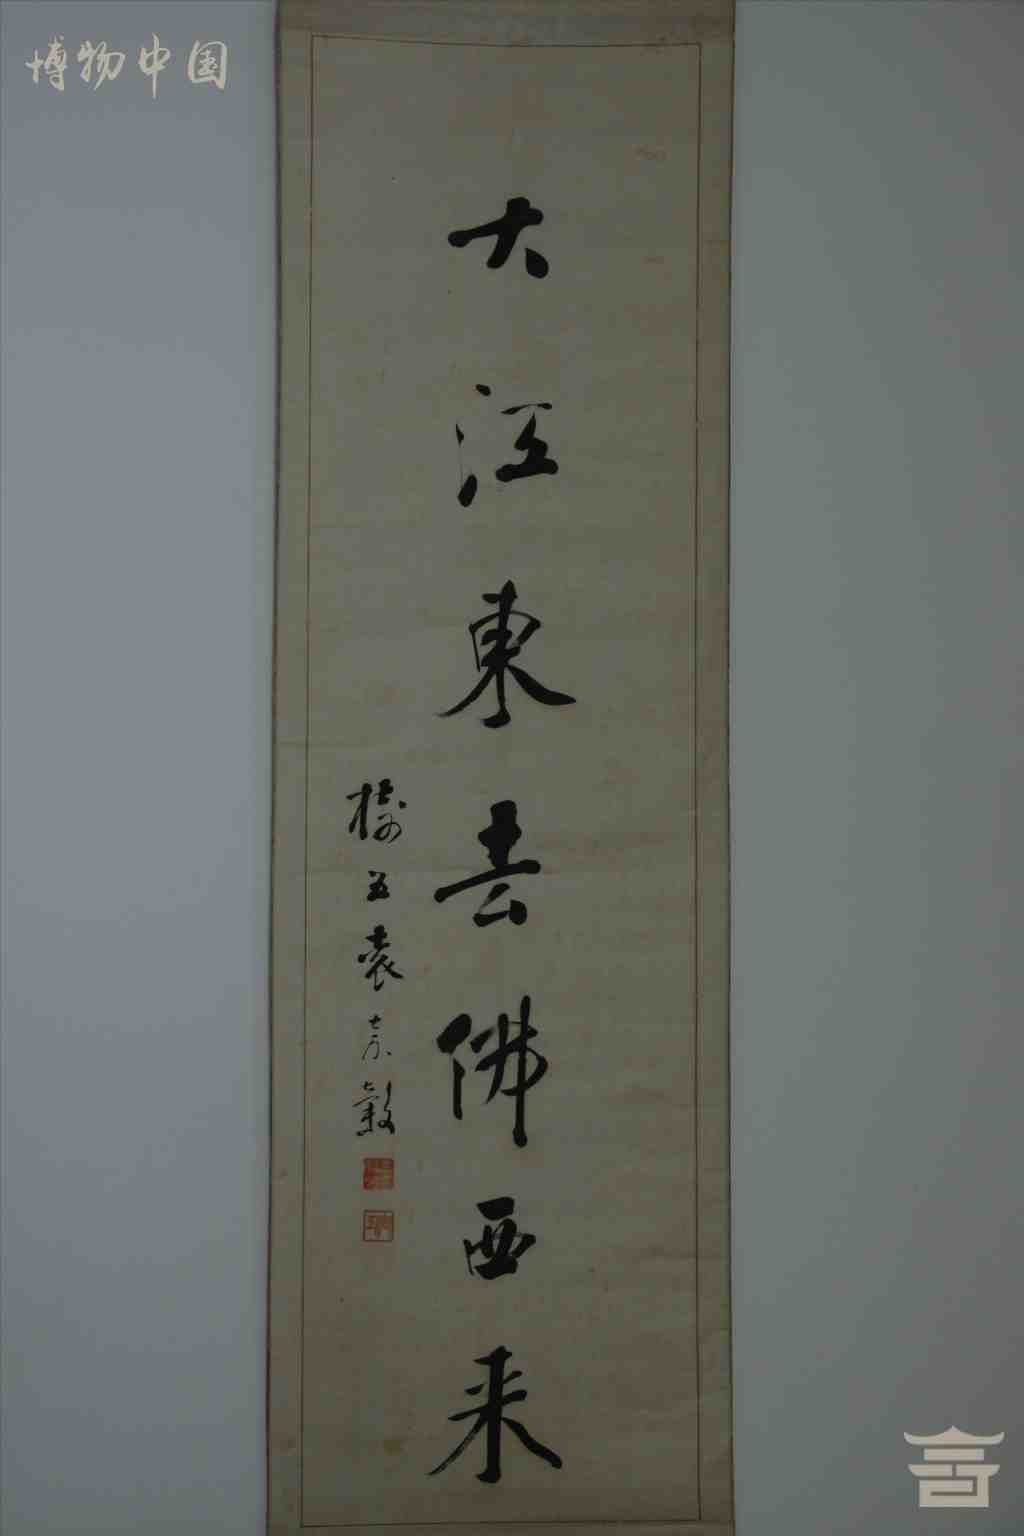 博物中国
大江東去佛西来
樹五袁嘉穀